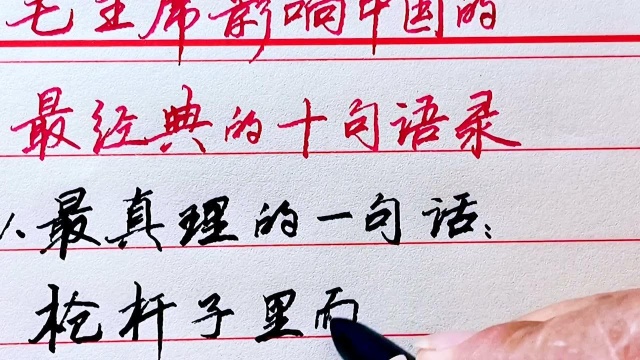 毛主席影响中国的
最经典的十句语录
1.最真理的一句话:
枪杆子里面